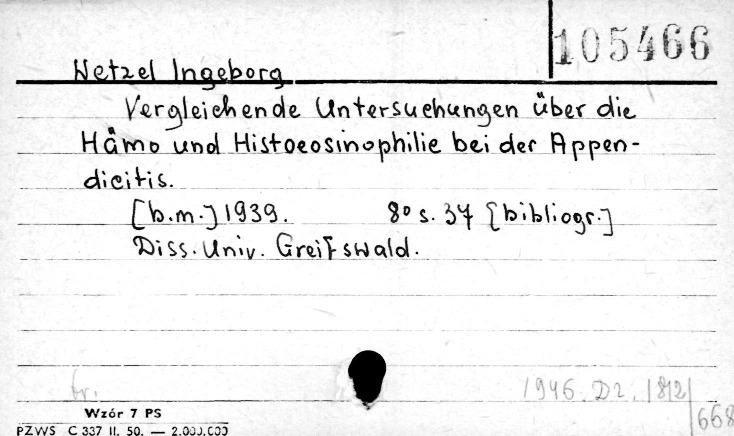 105466
Wetzel Ingeborg
Vergleichende Untersuchungen über die
Hämo und Histoeosinophilie bei der Appen-
dicitis.
[b.m.] 1939. 8° s. 37 [bibliogr.]
Diss. Univ. Greifswald.
1946. Dz. 1812/
668
Wzór 7 PS
PZWS C 337 II. 50. — 2.000.000